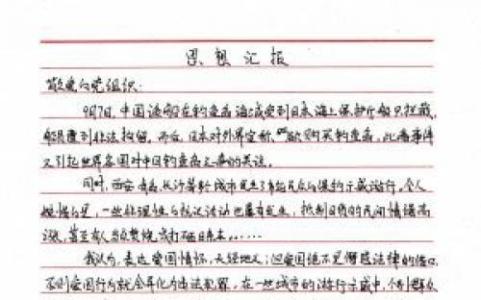 思想汇报
敬爱的党组织:
9月7日,中国渔船在钓鱼岛海域受到日本海上保安厅船只拦截,
船长遭到非法拘留。而后,日本对外界宣称,欲购买钓鱼岛,此番事件
又引起世界各国对中国钓鱼岛之争的关注。
同时,西安、青岛、长沙等数城市发生了有起反日的爆的示威游行。令人
惋惜的是,一些非理性的抗议活动也屡有发生,抵制日货的民间情绪高
涨,甚至有人当众焚烧或打砸日系车……
我认为,表达爱国情怀,天经地义;但爱国绝不是僭越法律的借口,
不则爱国行为就会异化为违法犯罪,在一些城市的游行示威中,个别群众